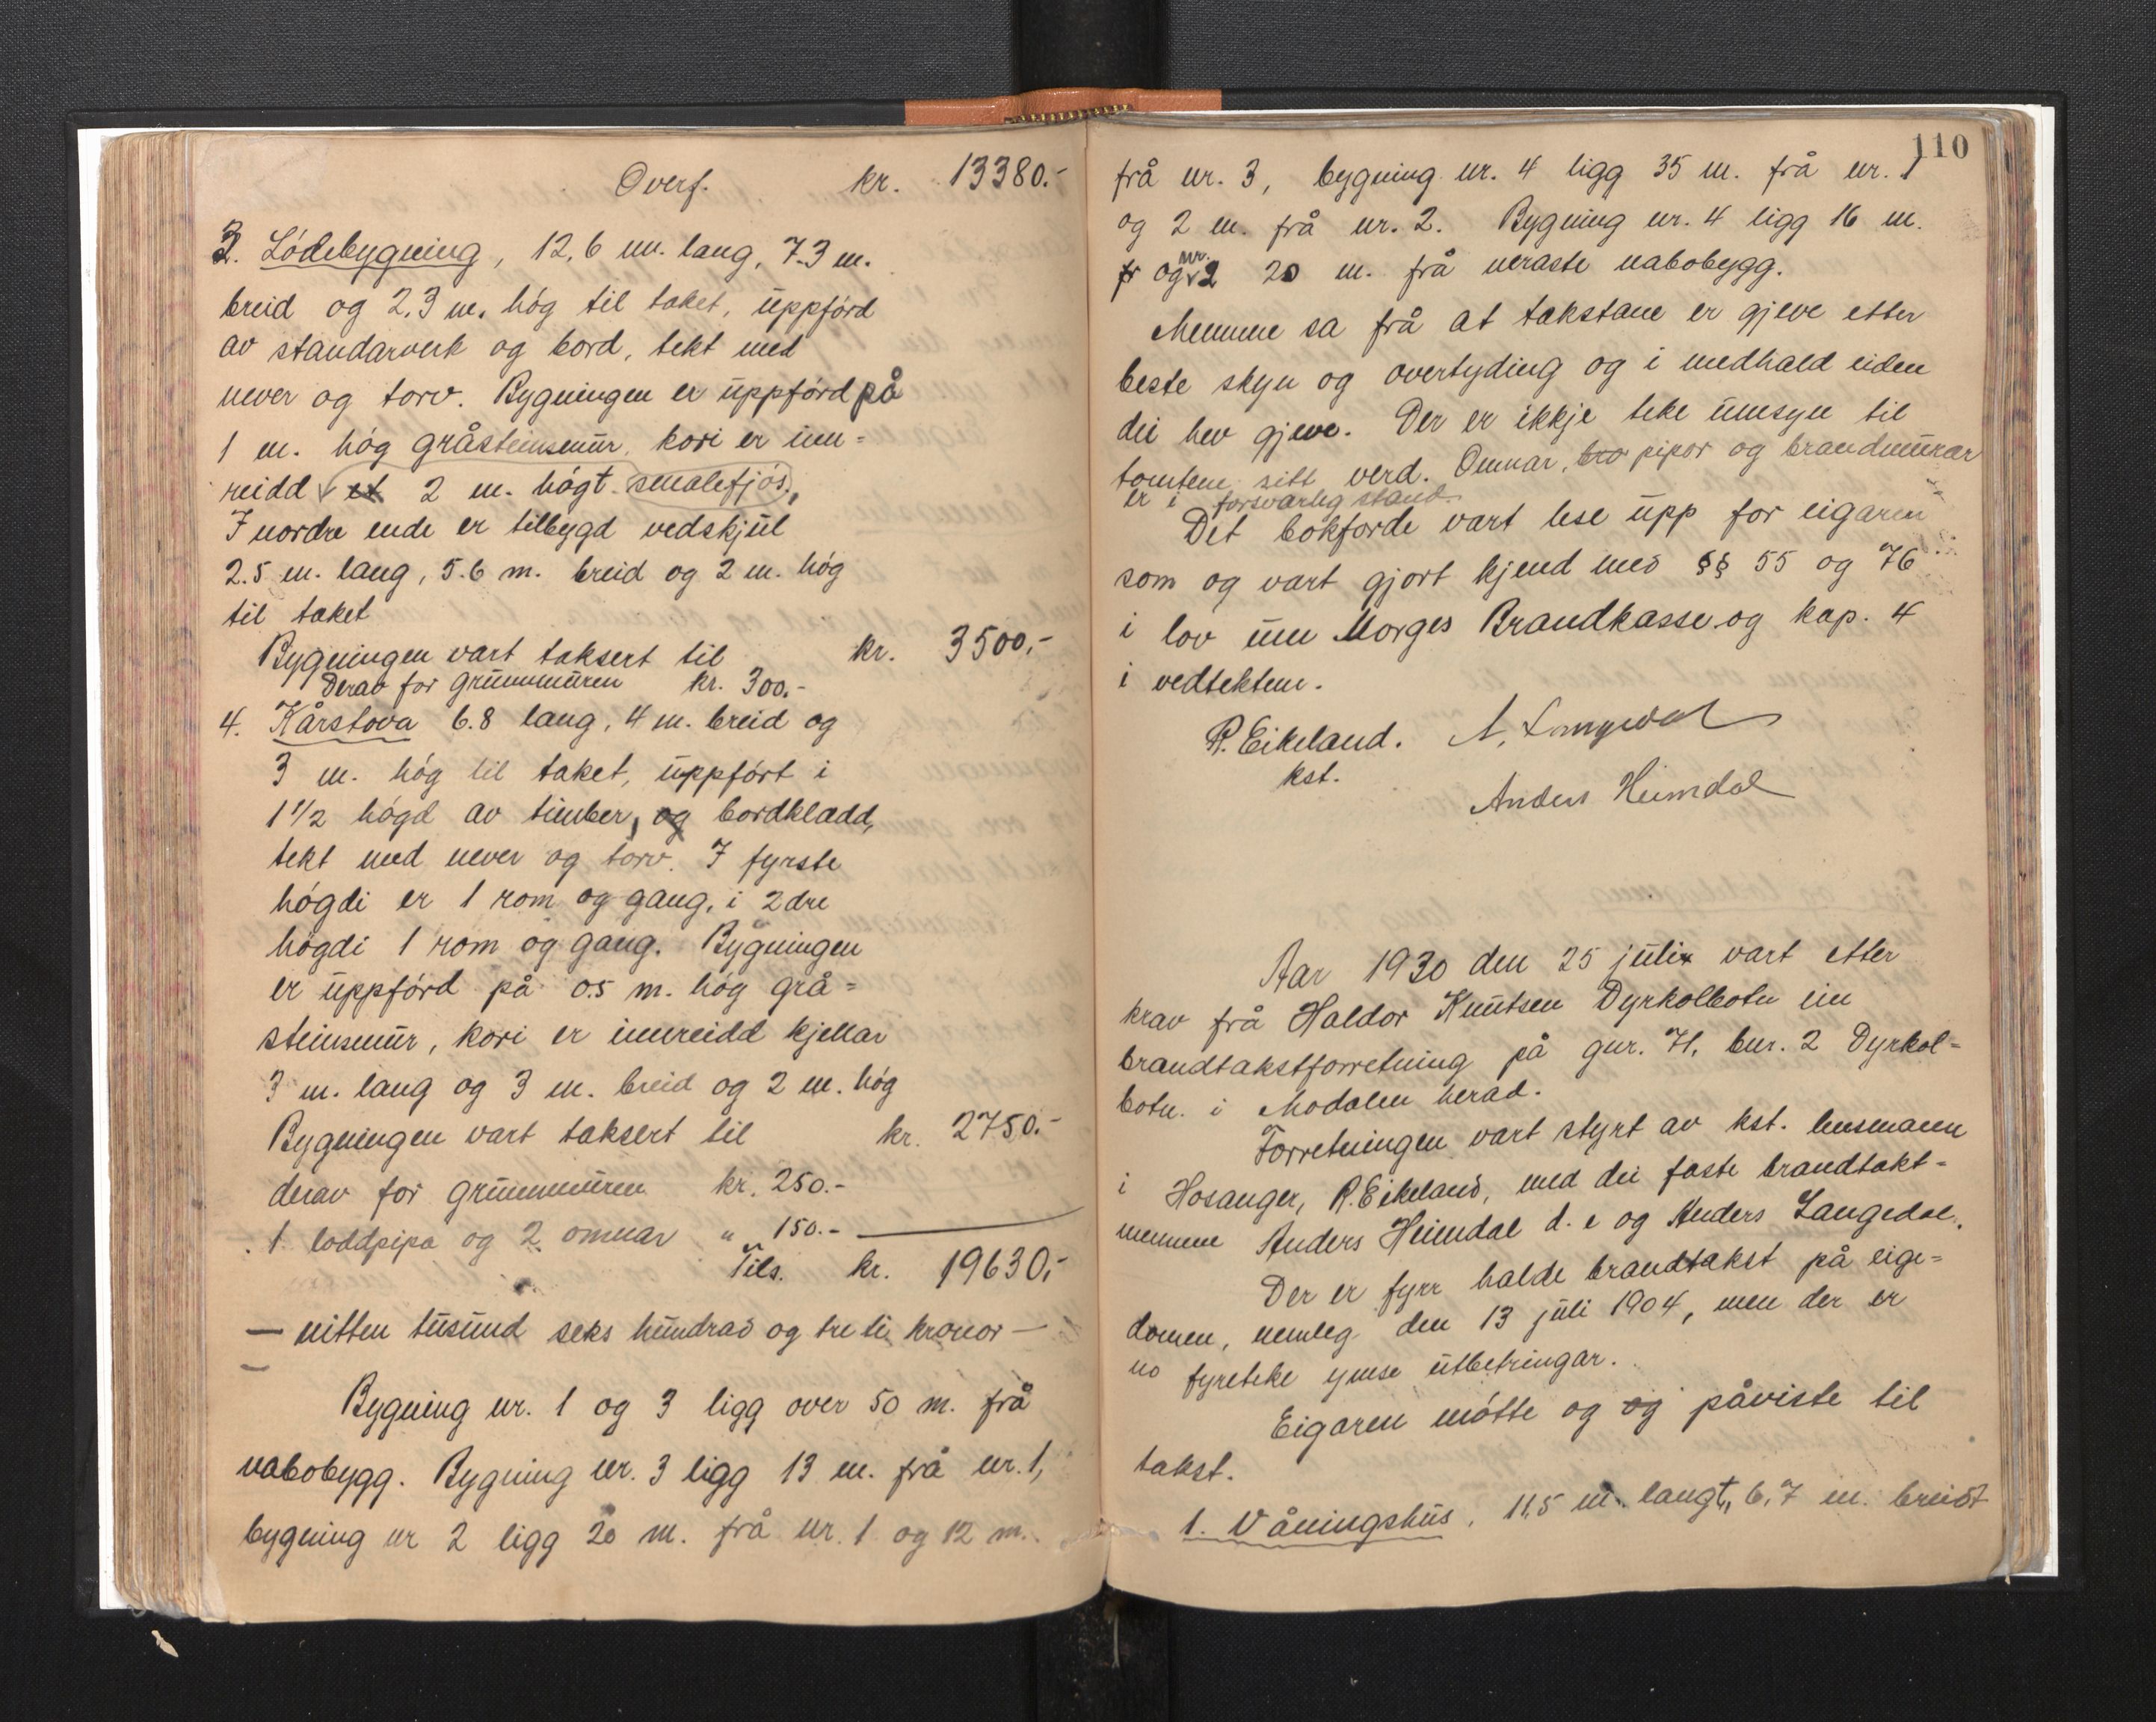 Overf. kr. 13380.-
3. Lödebygning, 12,6 m. lang, 7.3 m.
breid og 2,3 m. hög til taket, uppförd
av standarverk og bord, tekt med
never og torv. Bygningen er uppförd på
1 m. hög gråsteinsmur, kori er inn=
reidd et 2 m. högt smalefjös,
I nordre ende er tilbygd vedskjul
2.5 m. lang, 5.6 m. breid og 2 m. hög
til taket
Bygningen vart taksert til kr. 3500,-
Derav for grunnmuren kr. 300.-
4. Kårstova 6.8 lang, 4 m. breid og
3 m. hög til taket, uppfört i
1 1/2 högd av timber, og bordkladd,
tekt med never og torv. I fyrste
högdi er 1 rom og gang, i 2dre
högdi 1 rom og gang. Bygningen
er uppförd på 0.5 m. hög grå=
steinsmur, kori er innreidd kjellar
3 m. lang og 3 m. breid og 2 m. hög
Bygningen vart taksert til kr. 2750.-
derav for grunnmuren kr. 250.-
1 loddpipa og 2 omnar " 150.-
Tils. kr. 19630,-
— nitten tusund seks hundrad og tre ti kronor —
Bygning nr. 1 og 3 ligg over 50 m. frå
nabobygg. Bygning nr. 3 ligg 13 m. frå nr. 1,
bygning nr 2 ligg 20 m. frå nr. 1 og 12 m.
110
frå nr. 3, bygning nr. 4 ligg 35 m. frå nr. 1
og 2 m. frå nr. 2. Bygning nr. 4 ligg 16 m.
fr og nr. 2 20 m. frå neraste nabobygg.
Mennene sa frå at takstane er gjeve etter
beste skyn og overtyding og i medhald eiden
dei hev gjeve. Der er ikkje teke umsyn til
tomtene sitt verd. Omnar, bra pipor og brandmurar
er i forsvarleg stand.
Det bokförde vart lese upp for eigaren
som og vart gjort kjend med §§ 55 og 76
i lov um Norges Brandkasse og kap. 4
i vedtektene.
R. Eikeland. A. Langedal
kst.
Anders Heimdal
Aar 1930 den 25 juli vart etter
krav frå Haldor Knutsen Dyrkolbotn ein
brandtakstforretning på gnr. 71, bnr. 2 Dyrkol=
botn i Modalen herad.
Forretningen vart styrt av kst. lensmann
i Hosanger, R. Eikeland, med dei faste brandtakt=
mennene Anders Heimdal d. e og Anders Langedal.
Der er fyrr halde brandtakst på eige=
domen, nemleg den 13 juli 1904, men der er
no fyreteke ymse utbetringar.
Eigaren mötte og og påviste til
takst.
1. Våningshus, 11,5 m. langt, 6,7 m. breidt